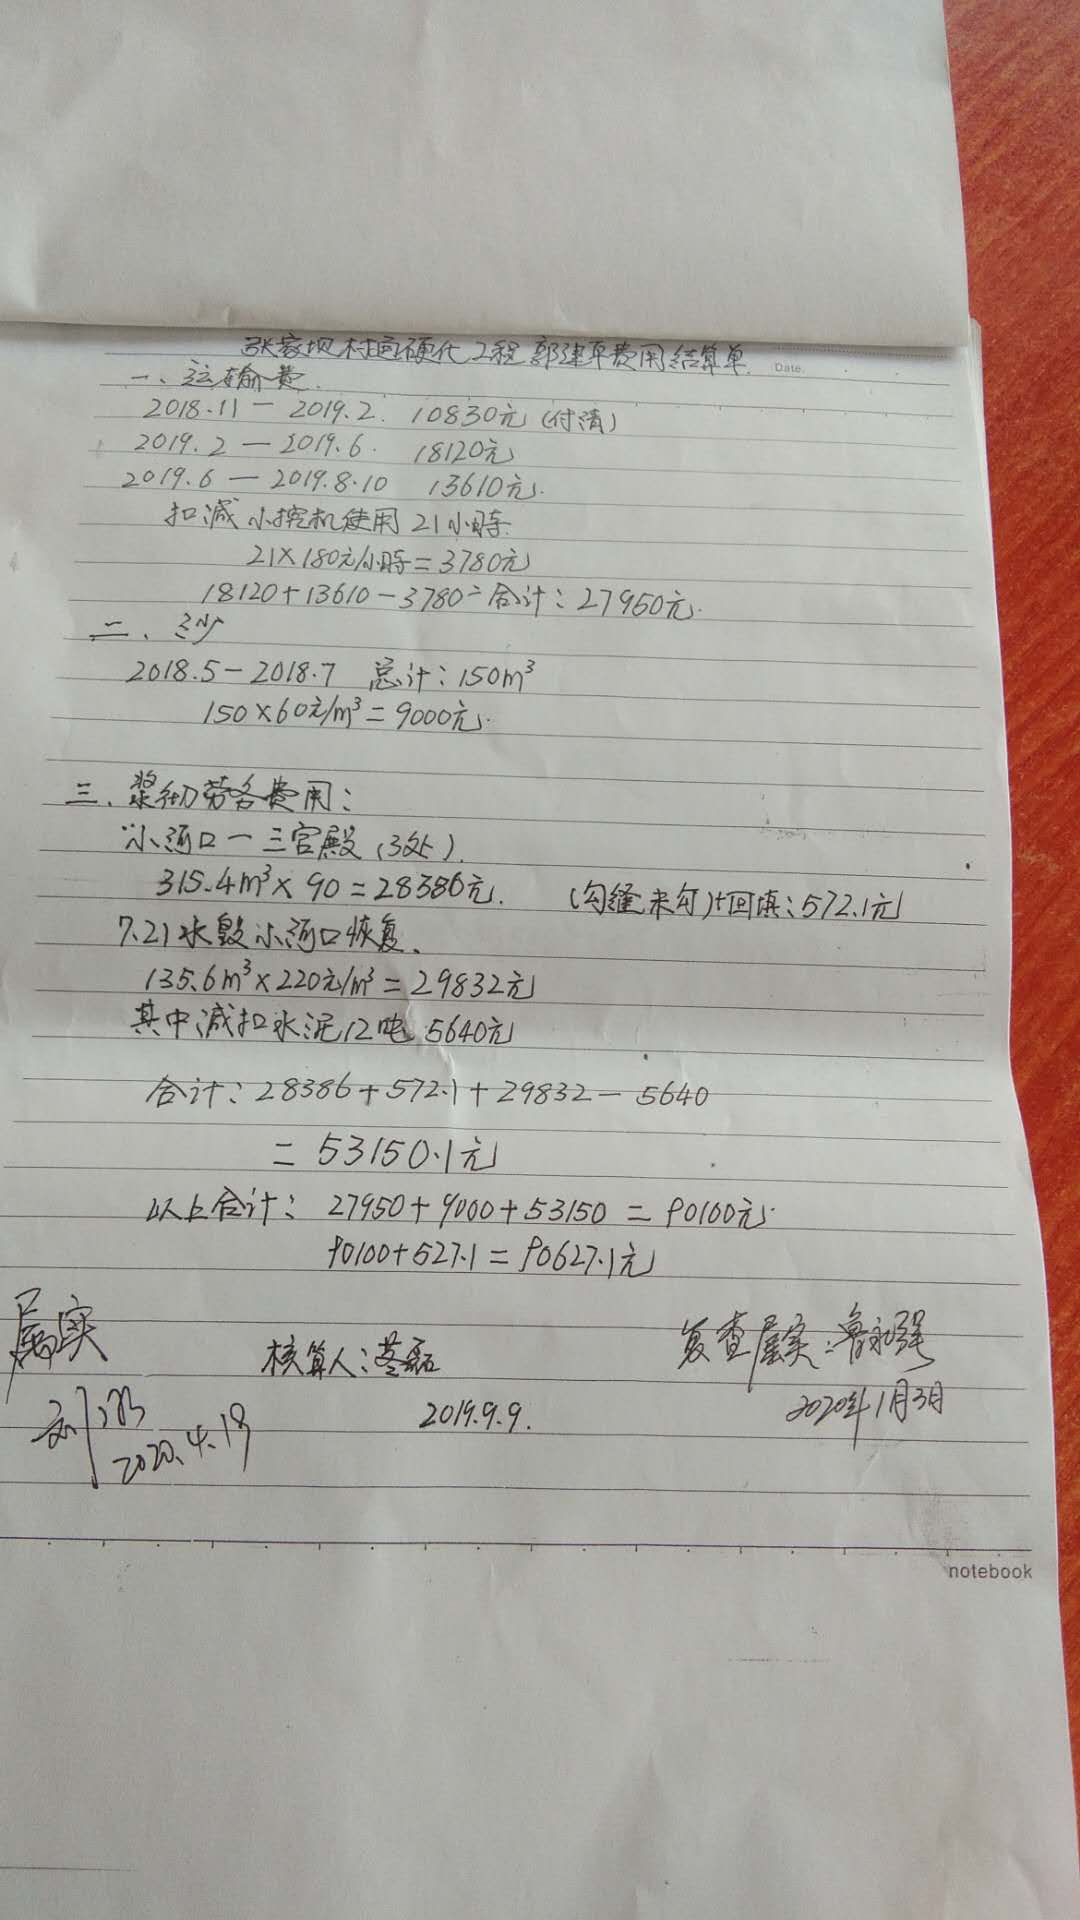 张家坝村道硬化工程郭建军费用结算单.
Date.
一、运输费.
2018.11 — 2019.2. 10830元(付清)
2019.2 — 2019.6. 18120元
2019.6 — 2019.8.10 13610元.
扣减小挖机使用21小時.
21×180元/小時=3780元
18120+13610-3780=合计:27950元.
二、沙
2018.5-2018.7 总计:150m³
150×60元/m³=9000元.
三、浆砌劳务费用:
小河口一三官殿(3处).
315.4m³×90=28386元. (勾缝未勾)+回填:572.1元
7.21水毁小河口恢复.
135.6m³×220元/m³=29832元
其中减扣水泥12吨 5640元
合计:28386+572.1+29832-5640
=53150.1元
以上合计: 27950+9000+53150=90100元.
90100+527.1=90627.1元
属实 核算人: 磊 复查属实:鲁永强
刘 2019.9.9. 2020年1月3日
2020.4.18
notebook